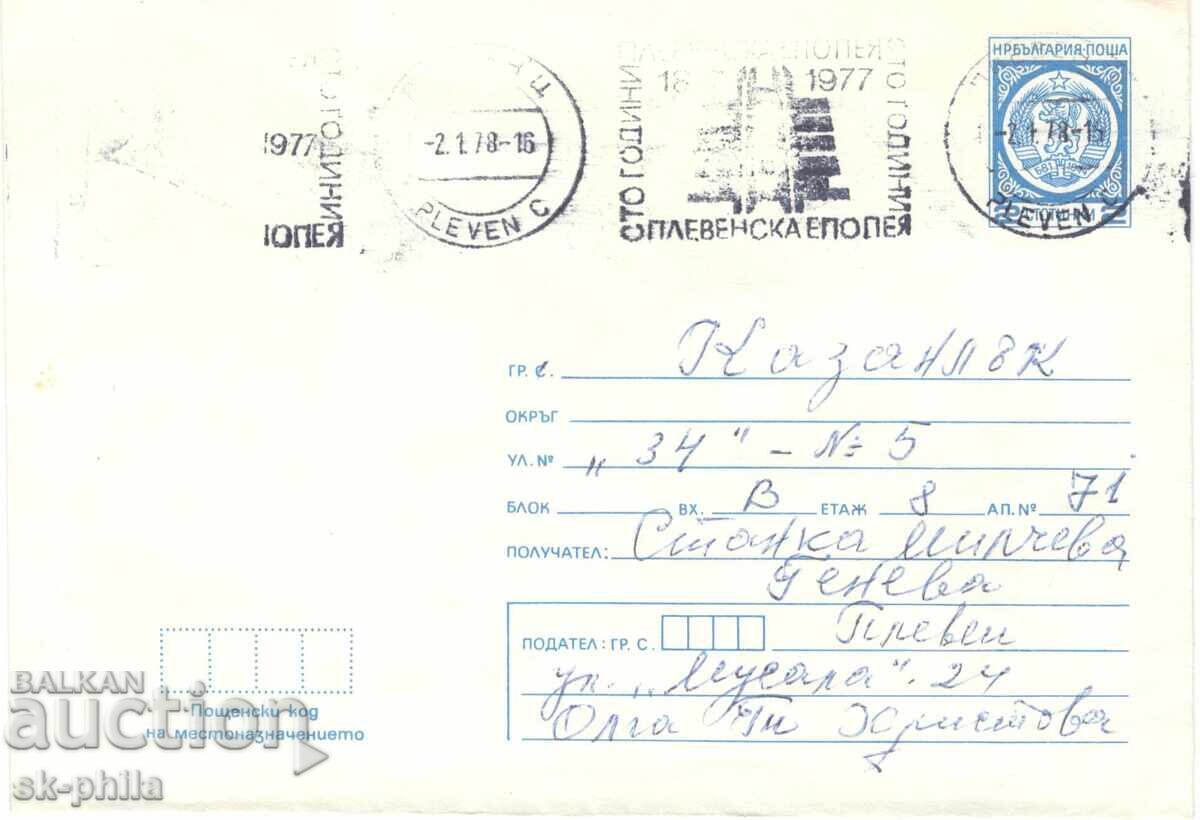 НР БЪЛГАРИЯ·ПОЩА
ПЛЕВЕНСКА ЕПОПЕЯ
СТО ГОДИНИ
СТО ГОДИНИ
18 1977
ПЛЕВЕНСКА ЕПОПЕЯ
1977
ГОДИНИ
ПОПЕЯ
-2.1.78-16
PLEVEN C
-2.1.78-16
PLEVEN C
СТОТИНКИ 2
ГР. С. Казанлък
ОКРЪГ
УЛ. № „34“ - № 5
БЛОК ВХ. В ЕТАЖ 8 АП. № 71
ПОЛУЧАТЕЛ: Станка Минчева
Генева
ПОДАТЕЛ: ГР. С. Плевен
ул. „Мусала“ 24
Олга Христова
Пощенски код
на местоназначението
BALKAN
auction
sk-phila